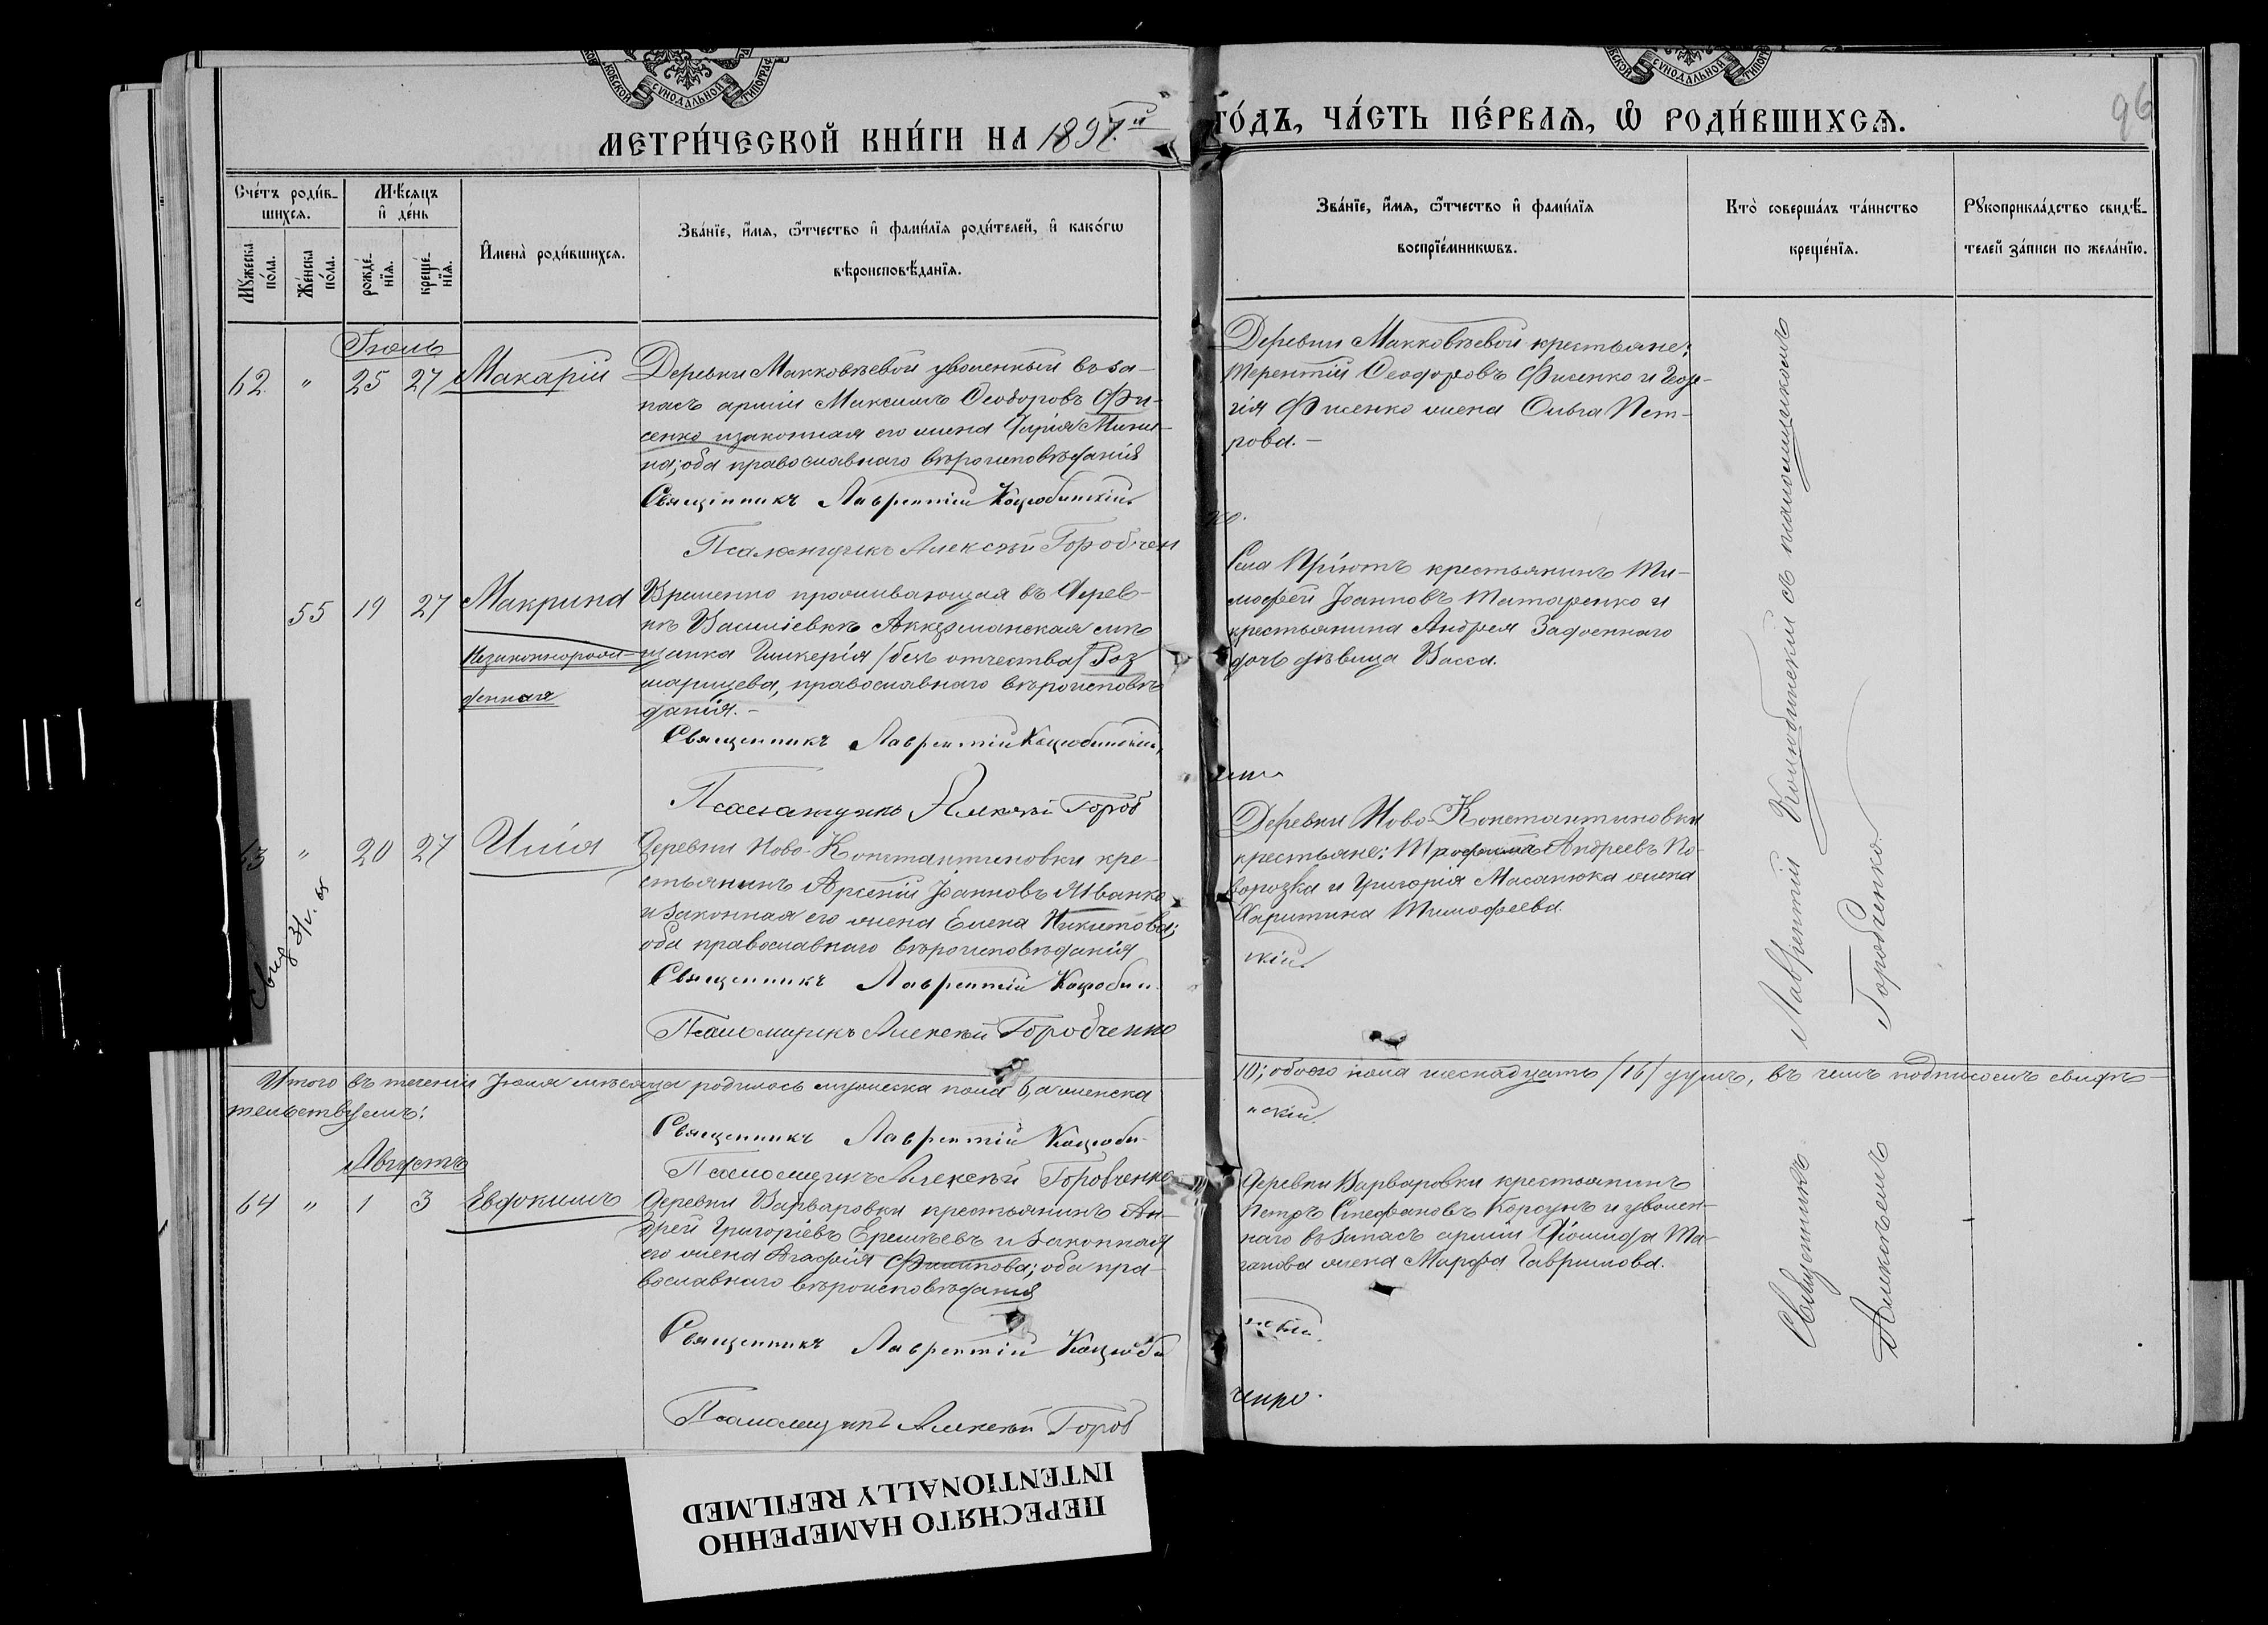 МЕТРИ́ЧЕСКОЙ КНИ́ГИ НА 1898й
ГО́ДЪ, ЧА́СТЬ ПЕ́РВАЯ, Ѡ РОДИ́ВШИХСЯ.
96
Сче́тъ роди́в-
шихся.
Мѣ́сяцъ
и де́нь
Му́жеска по́ла.
Же́нска по́ла.
рожде́-
нїя.
креще́-
нїя.
Имена̀ роди́вшихся.
Зва́нїе, и́мя, ѻ́тчество и фами́лїя роди́телей, и како́гѡ
вѣроисповѣ́данїя.
Зва́нїе, и́мя, ѻ́тчество и фами́лїя
воспрїе́мникѡвъ.
Кто̀ соверша́лъ та́инство
креще́нїя.
Рꙋкоприкла́дство свидѣ́-
телей за́писи по жела́нїю.
Іюль
62 " 25 27 Макарій
Деревни Макковѣевой уволенный въ за-
пасъ арміи Максимъ Ѳеодоровъ Фи-
сенко и законная его жена Марія Мини-
на; оба православнаго вѣроисповѣданія
Священникъ Лаврентій Коцюбинскій
Псаломщикъ Алексѣй Горобчен
ко.
Деревни Макковѣевой крестьяне:
Терентій Ѳеодоровъ Фисенко и Геор-
гія Фисенко жена Ольга Пет-
рова.-
55 19 27 Макрина
Незаконнорож-
денная
Временно проживающая въ дерев-
нѣ Василіевкѣ Аккерманская мѣ
щанка Гликерія (безъ отчества) Роз
марицева, православнаго вѣроисповѣ
данія.-
Священникъ Лаврентій Коцюбинскій
Псаломщикъ Алексѣй Гороб
Села Пріютъ крестьянинъ Ти-
мофей Іоанновъ Татаренко и
крестьянина Андрея Задоеннаго
дочь дѣвица Васса.
63 " 20 27 Илія
Деревни Ново-Константиновки кре-
стьянинъ Арсеній Іоанновъ Иванко
и законная его жена Елена Никитова;
оба православнаго вѣроисповѣданія
Священникъ Лаврентій Коцюбин
скій
Псаломщикъ Алексѣй Горобченко
Деревни Ново-Константиновки
крестьяне: Трофимъ Андреевъ По-
ворозка и Григорія Масанюка жена
Харитина Тимофеева.
Итого въ теченіи Іюля мѣсяца родилось мужеска пола 6, а женска
10; обоего пола шеснадцать (16) душъ, въ чемъ подписомъ свидѣ-
тельствуемъ:
Священникъ Лаврентій Коцюби-
нскій
Псаломщикъ Алексѣй Горобченко
Августъ
64 " 1 3 Евдокимъ
Деревни Варваровки крестьянинъ Ан-
дрей Григоріевъ Еремѣевъ и законная
его жена Агафія Филипова; оба пра-
вославнаго вѣроисповѣданія
Священникъ Лаврентій Коцюби
нскій
Псаломщикъ Алексѣй Гороб
ченко.
Деревни Варваровки крестьянинъ
Петръ Стефановъ Корсунъ и уволен-
наго въ запасъ арміи Іосифа
жена Марфа Гаврилова.
Священникъ Лаврентій Коцюбинскій съ псаломщикомъ
Алексѣемъ Горобченко
ПЕРЕСНЯТО НАМЕРЕННО
INTENTIONALLY REFILMED